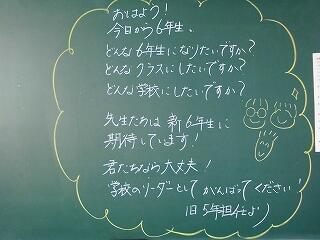 おはよう！
今日から6年生。
どんな6年生になりたいですか？
どんなクラスにしたいですか？
どんな学校にしたいですか？
先生たちは新6年生に
期待しています！
君たちなら大丈夫！
学校のリーダーとしてがんばってください！
旧5年担任より